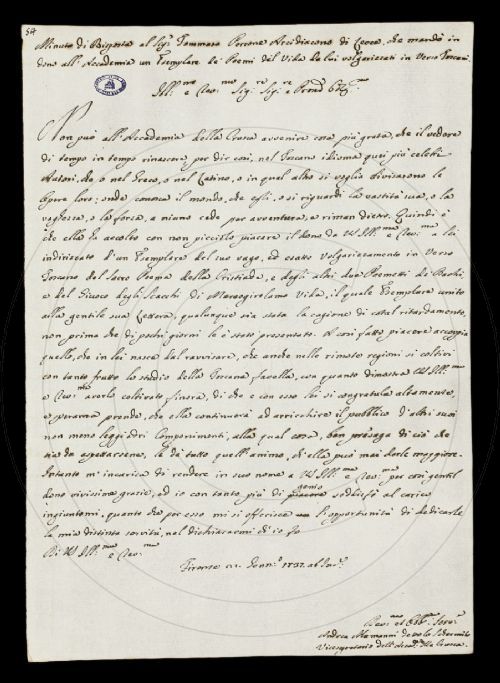 54
Minuta di Risposta al Sigr. Tommaso Perrone Arcidiacono di Lecce, che mandò in
dono all'Accademia un Esemplare de' Poemi del Vida da lui volgarizzati in Verso Toscano.
Ill.mo e Rev.mo Sig.re Sig.re e Pron
Non può all'Accademia della Crusca avvenire cosa più grata, che il vedere
di tempo in tempo rinascere, per dir così, nel Toscano idioma quei più celebri
Autori, che o nel Greco, o nel Latino, o in qual altro si voglia divisarono le
Opere loro: onde conosca il mondo, che esso, o si riguardi la vastità sua, o la
vaghezza, o la forza, a niuno cede per avventura, e riman dietro. Quindi è
che ella ha accolto con non piccolo piacere il dono da VS Ill.ma e Rev.ma a lei
indirizzato d'un Esemplare del suo vago, ed esatto Volgarizzamento in Verso
Toscano del Sacro Poema della Cristiade, e degli altri due Poemetti de' Bachi
e del Giuoco degli Scacchi di Marcogirolamo Vida, il quale Esemplare unito
alla gentile sua Lettera, qualunque sia stata la cagione di cotal ritardamento,
non prima che di pochi giorni le è stato presentato. A così fatto piacere accoppia
quello, che in lei nasce dal ravvisare, che anche nelle rimote regioni si coltivi
con tanto frutto lo studio della Toscana favella, con quanto dimostra VS Ill.ma
e Rev.ma averlo coltivato finora, di che e con esso lei si congratula altamente,
e speranza prende, che ella continuerà ad arricchire il pubblico d'altri suoi
non meno leggiadri Componimenti, alla qual cosa, ben presaga di ciò che
sia da aspettarsene, le dà tutto quell'animo, che ella può mai darle maggiore.
Intanto m'incarica di rendere in suo nome a VS Ill.ma e Rev.ma per così gentil
dono vivissime grazie, ed io con tanto più di genio soddisfo al carico
ingiuntomi, quanto che per esso mi si offerisce l'opportunità di dedicarle
la mia distinta servitù, nel dichiararmi ch'io fo
Di VS Ill.ma e Rev.ma
Firenze Genn.o 1737
Dev.mo et Obb.mo Serv.e
Andrea Alamanni
Vicesegretario dell'Accad. della Crusca